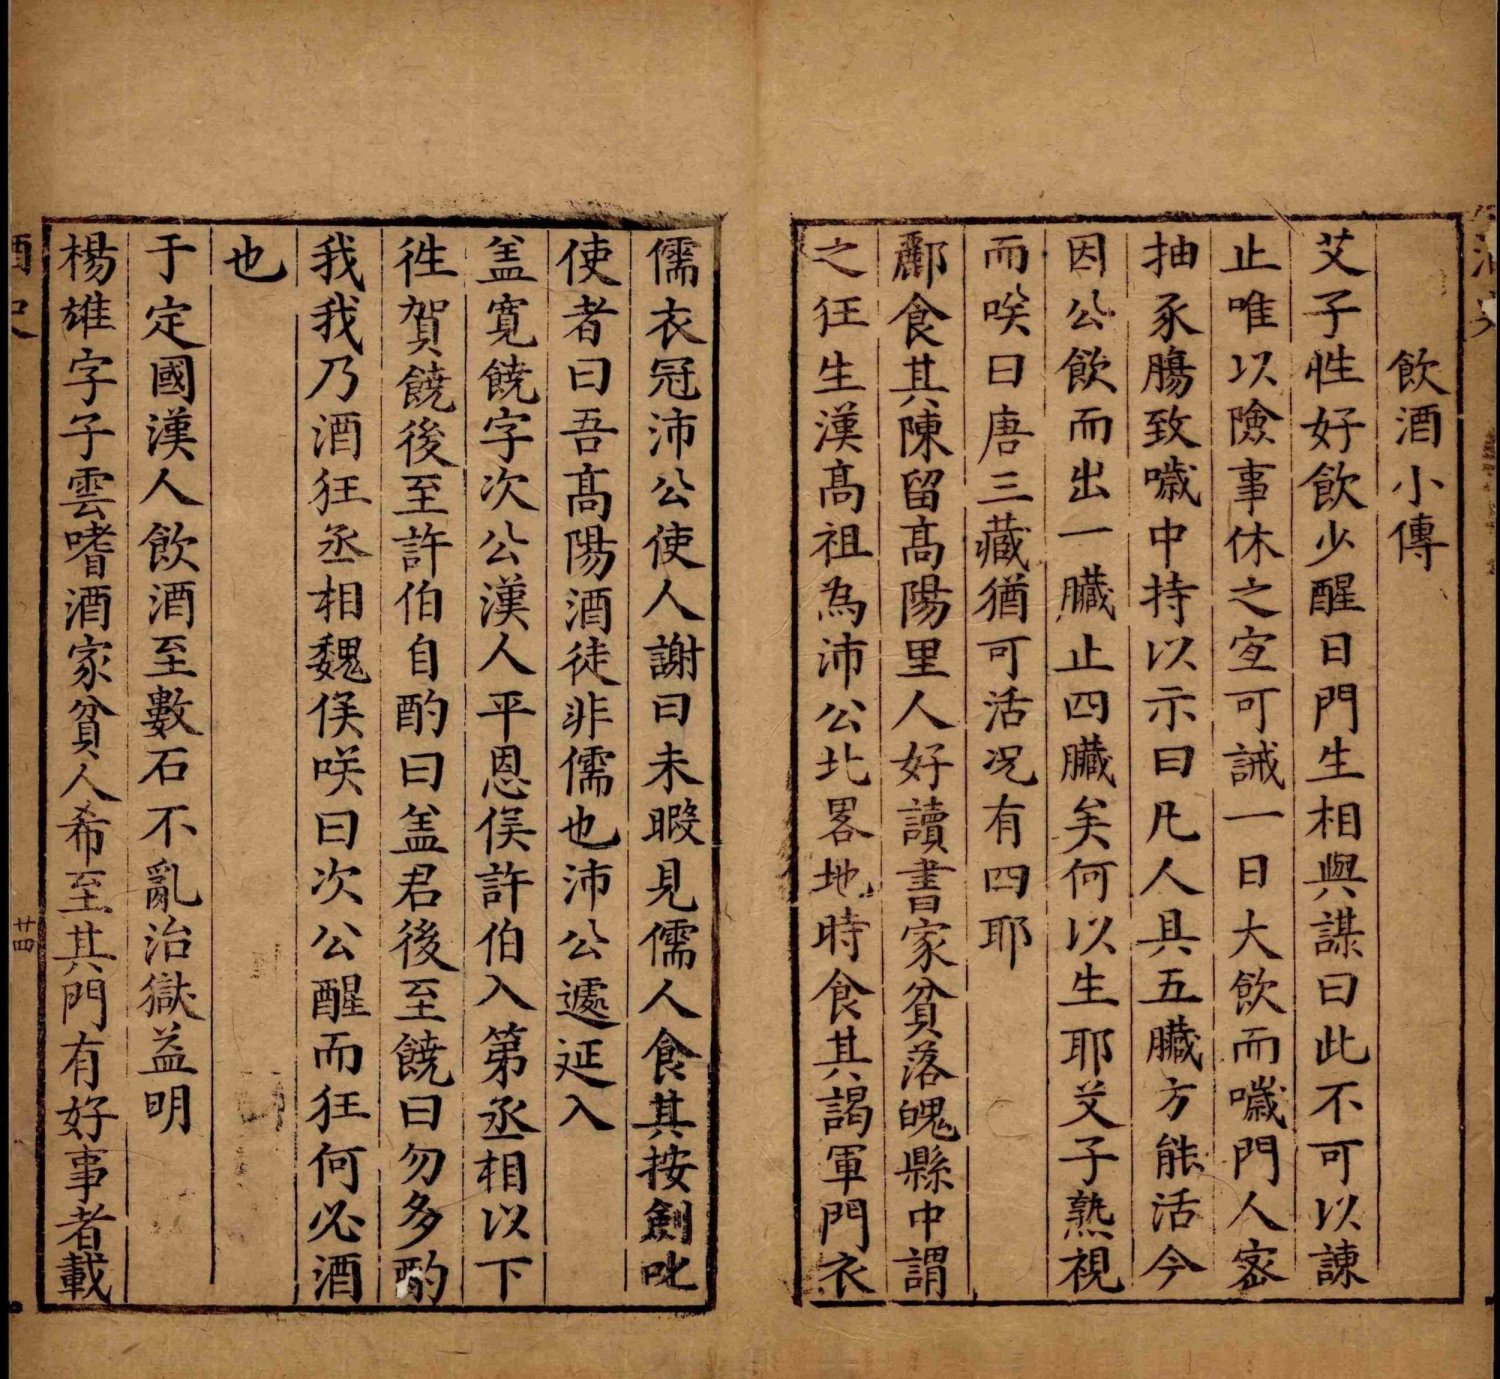 飲酒小傳
艾子性好飲少醒日門生相與謀曰此不可以諫
止唯以險事休之宜可誡一日大飲而噦門人密
抽豕腸致噦中持以示曰凡人具五臟方能活今
因公飲而出一臟止四臟矣何以生耶艾子熟視
而咲曰唐三藏猶可活况有四耶
酈食其陳留髙陽里人好讀書家貧落魄縣中謂
之狂生漢髙祖為沛公北畧地時食其謁軍門衣
儒衣冠沛公使人謝曰未暇見儒人食其按劍叱
使者曰吾髙陽酒徒非儒也沛公遽延入
盖寛饒字次公漢人平恩侯許伯入第丞相以下
徃賀饒後至許伯自酌曰盖君後至饒曰勿多酌
我我乃酒狂丞相魏侯咲曰次公醒而狂何必酒
也
于定國漢人飲酒至數石不亂治獄益明
楊雄字子雲嗜酒家貧人希至其門有好事者載
酒史